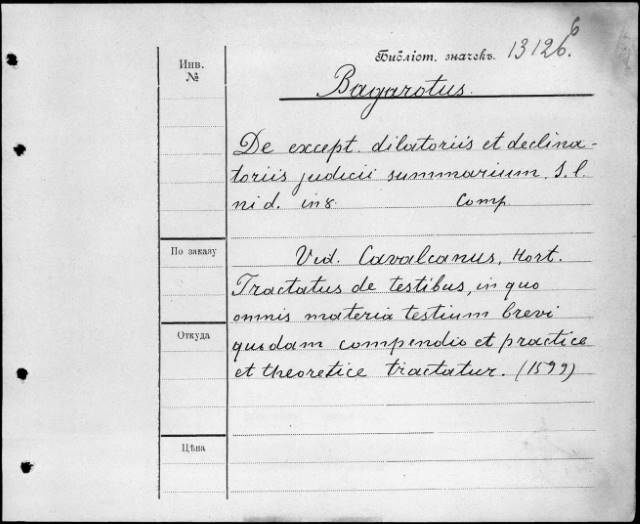 6
Библіот. значекъ. 13126.
Инв.
№
Bagarotus.
De except. dilatoriis et declina-
toriis judicii summarium. S. l.
ni d. in 8. Comp.
По заказу
Vid. Cavalcanus, Hort.
Tractatus de testibus, in quo
omnis materia testium brevi
Откуда
quodam compendio et practice
et theoretice tractatur. (1599)
Цѣна